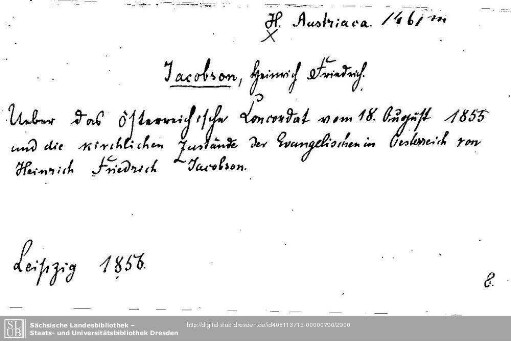 H. Austriaca. 1461 m
Jacobson, Heinrich Friedrich.
Ueber das österreichische Concordat vom 18. August 1855
und die kirchlichen Zustände der Evangelischen in Oesterreich von
Heinrich Friedrich Jacobson.
Leipzig 1856.
8.
SLUB
Sächsische Landesbibliothek –
Staats- und Universitätsbibliothek Dresden